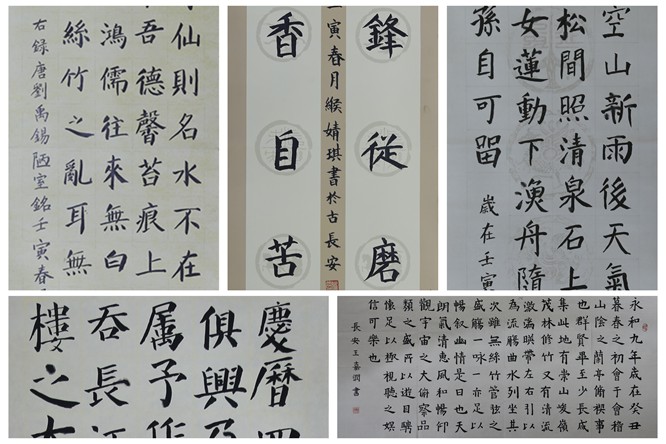 仙則名水不在
吾德馨苔痕上
鴻儒往來無白
絲竹之亂耳無
右録唐劉禹錫陋室銘壬寅春
鋒從磨
寅春月緱婧琪書於古長安
香自苦
空山新雨後天氣
松間照清泉石上
女蓮動下漁舟隨
孫自可留
歲在壬寅
慶曆
俱興乃
属予作
吞長江
樓之大
永和九年歲在癸丑
暮春之初會于會稽
山陰之蘭亭稧事
也群賢畢至少長咸
集此地有崇山峻嶺
茂林修竹又有清流
激湍暎帶左右引以
為流觴曲水列坐其
次雖無絲竹管弦之
盛觴一咏一亦足以
暢叙幽情是日也天
朗氣清惠風和暢仰
觀宇宙之大俯察品
類之盛所以遊目騁
懷足以極視聽之娛
信可樂也
長安王嘉潤書